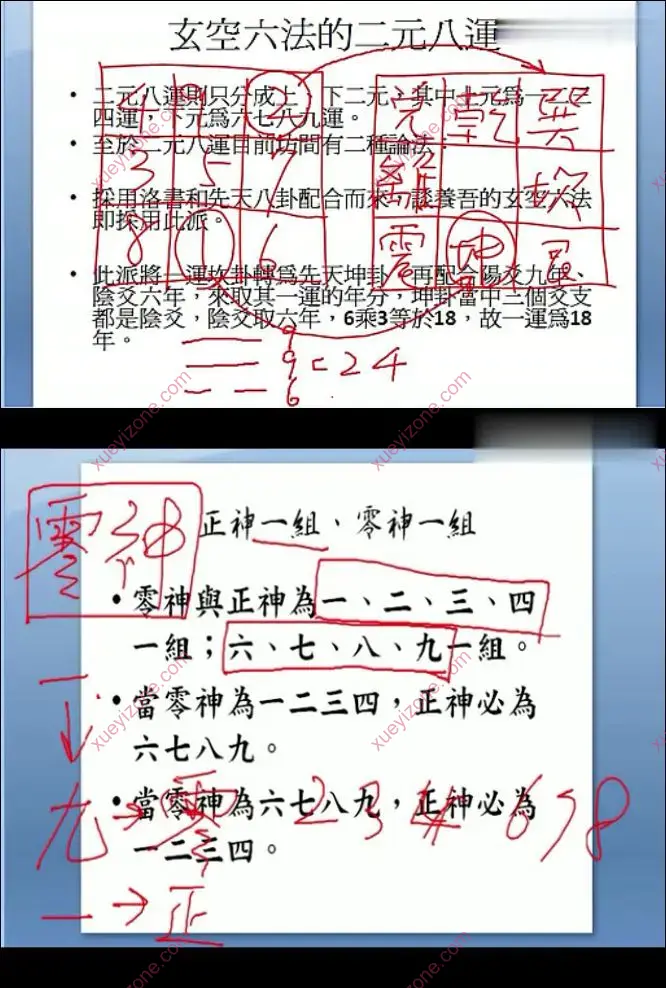 玄空六法的二元八運
• 二元八運則只分成上、下二元，其中上元為一二三
四運，下元為六七八九運。
• 至於二元八運目前坊間有二種論法
• 採用洛書和先天八卦配合而來，談養吾的玄空六法
即採用此派。
• 此派將一運坎卦轉為先天坤卦，再配合陽爻九年、
陰爻六年，來取其一運的年分，坤卦當中三個爻支
都是陰爻，陰爻取六年，6乘3等於18，故一運為18
年。
4 9 2
3 5 7
8 1 6
兌 乾 巽
離 坎
震 坤 艮
9
9 = 24
6
零神
正神一組、零神一組
• 零神與正神為一、二、三、四
一組；六、七、八、九一組。
• 當零神為一二三四，正神必為
六七八九。
• 當零神為六七八九，正神必為
一二三四。
一
↓
九 → 零 2 3 4 6 7 8
一 → 正
xueyizone.com
xueyizone.com
xueyizone.com
xueyizone.com
xueyizone.com
xueyizone.com
xueyizone.com
xueyizone.com
xueyizone.com
xueyizone.com